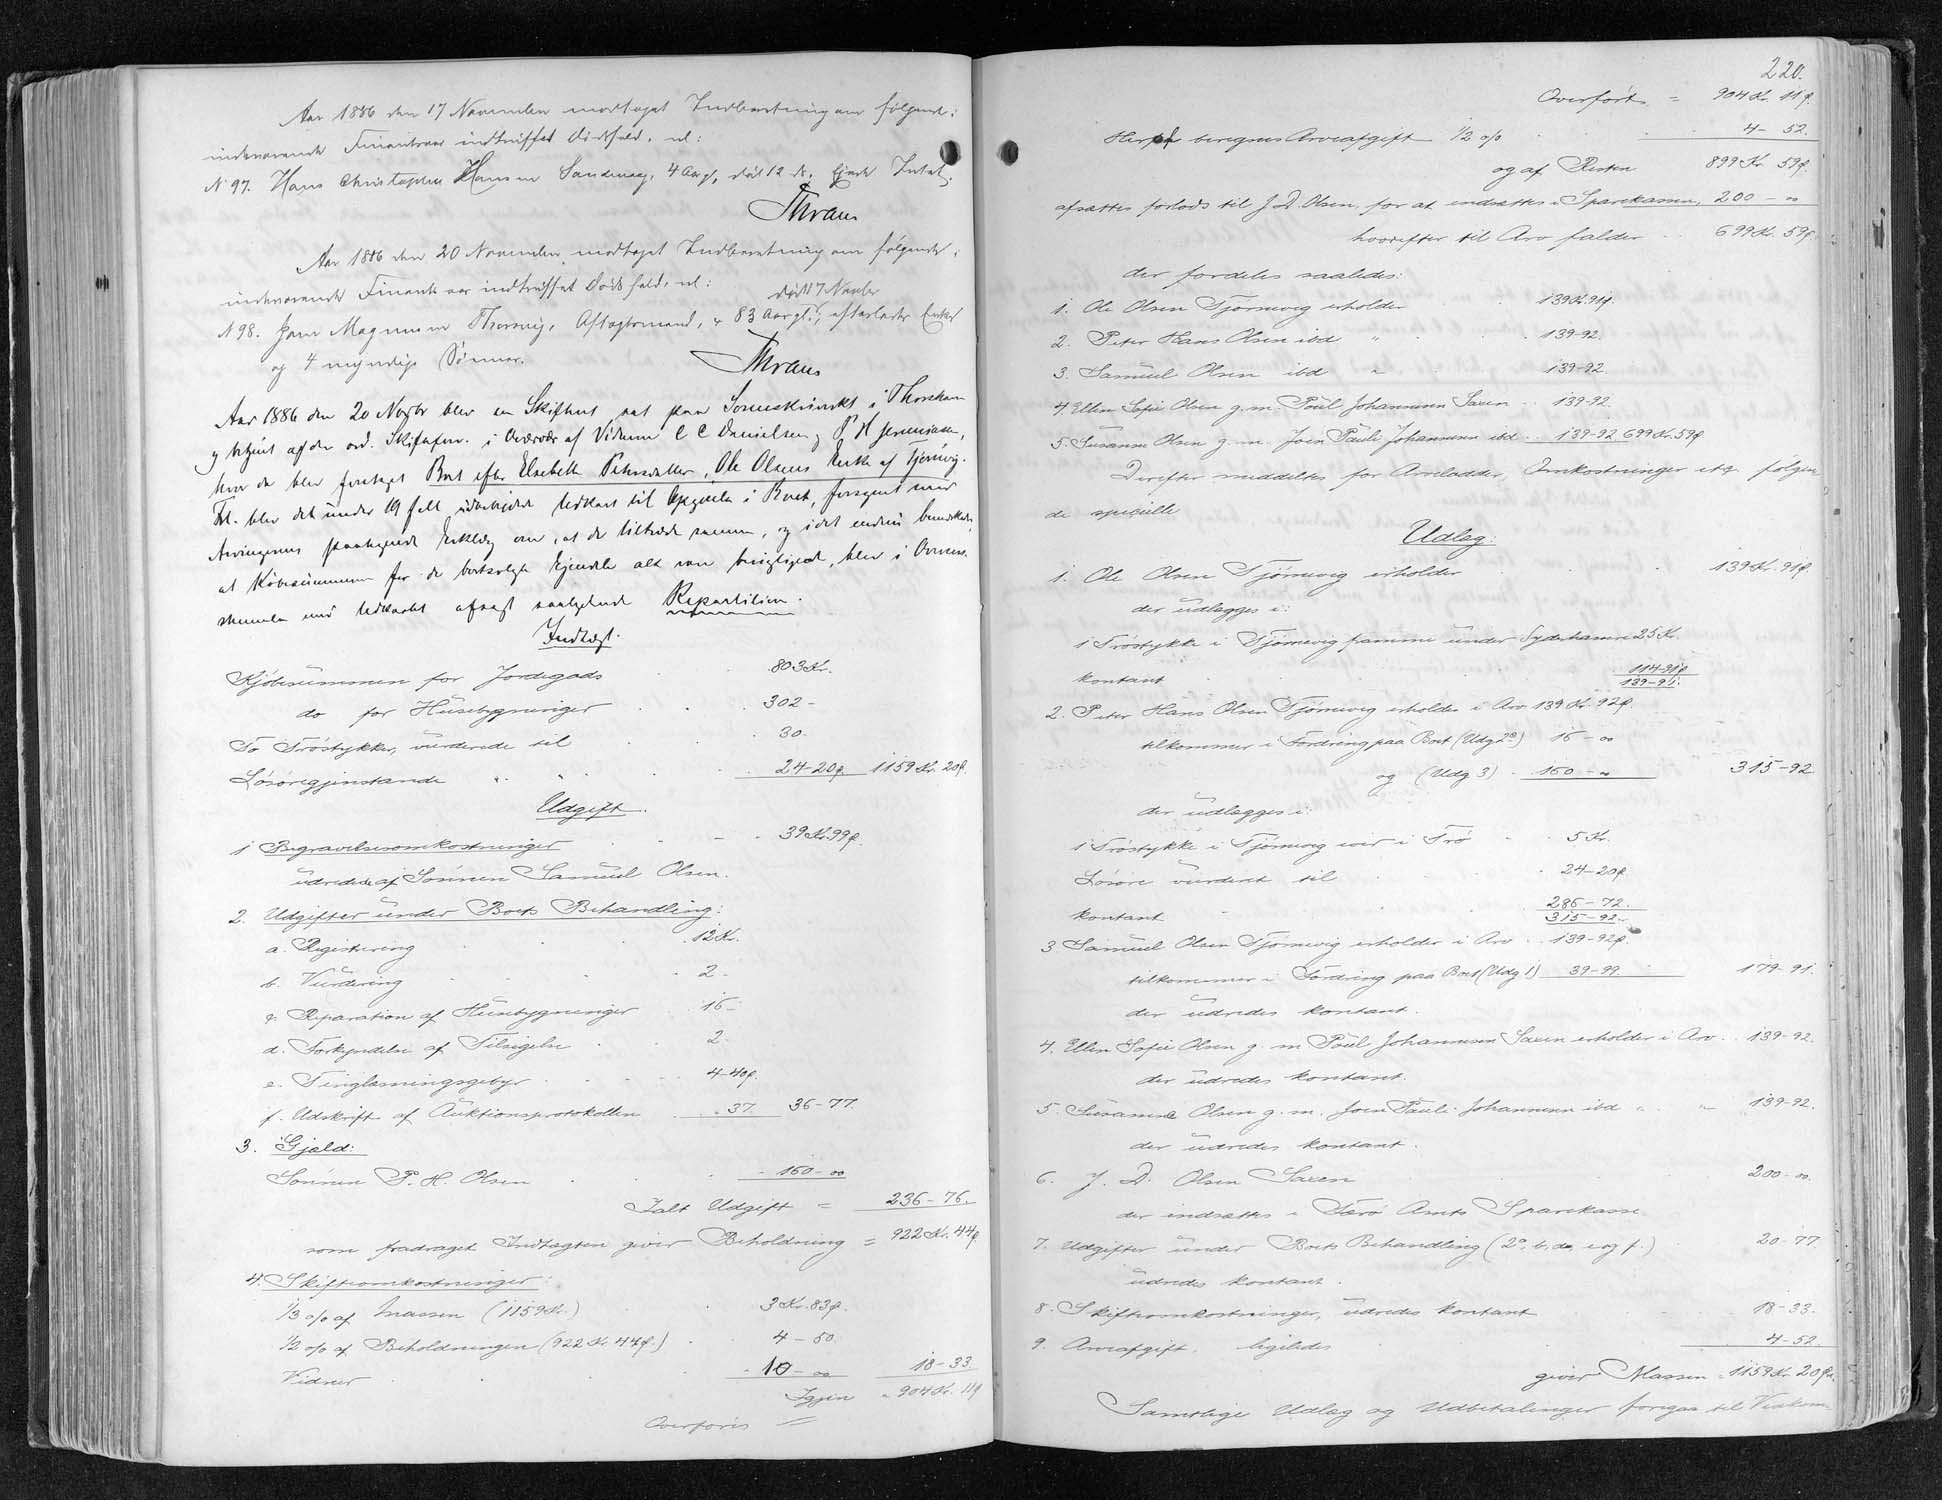 Aar 1886 den 17 November modtaget Indberetning om følgende i
indeværende Finantsaar indtruffet Dødsfald, nl:
N 97. Hans Christopher Hansen Sandevaag, 4 Aar gl, død 12 ds. Ejede Intet.
Thraus
Aar 1886 den 20 November modtaget Indberetning om følgende i
indeværende Finantsaar indtruffet Dødsfald, nl:
død 17 Novbr
N 98. Joen Magnussen Thorsvig, Aftægtsmand, 83 Aar gl., efterlader Enke
og 4 myndige Sønner.
Thraus
Aar 1886 den 20 Novbr blev en Skifteret sat paa Sorenskriverkt. i Thorshavn
og betjent af den ord. Skiftefor. i Overvær af Vidnerne C C Danielsen og P H Jeremiasen,
hvor da blev foretaget Boet efter Elsebeth Petersdatter, Ole Olsens Enke af Tjørnevig.
Fdl. blev det under 19 felt udarbejdede Udkast til Opgjørelse i Boet, forsynet med
Arvingernes paategnede Erklæg om, at de tiltræde samme, og idet endnu bemærkedes,
at Købesummen for de bortsolgte Ejendele alt var berigtiget, blev i Overens-
stemmelse med Udkastet afsagt saalydende Repartition.
Indtægt.
Kjøbesummen for Jordegods 803 Kr.
do for Husebygninger 302 -
To Trøstykker, vurderede til 30.
Løsøregjenstande " " 24-20 ø. 1159 Kr. 20 ø.
Udgift.
1 Begravelsesomkostninger 39 Kr. 99 ø.
udredede af Sønnen Samuel Olsen.
2. Udgifter under Boets Behandling:
a. Registrering 12 Kr.
b. Vurdering 2 -
c. Reparation af Husebygninger 16 -
d. Forkyndelse af Tilsigelse 2.
e. Tinglæsningsgebyr 4-40 ø.
f. Udskrift af Auktionsprotokollen 37. 36-77.
3. Gjæld:
Sønnen P. H. Olsen 160-00
Ialt Udgift = 236-76.
som fradraget Indtægten giver Beholdning = 922 Kr. 44 ø.
4. Skifteomkostninger:
1/3 o/o af Massen (1159 Kr.) 3 Kr. 83 ø.
1/2 o/o af Beholdningen (922 Kr. 44 ø.) 4-50.
Vidner 10-00 18-33.
Igjen = 904 Kr. 11 ø
Overføres =
220.
Overført = 904 Kr. 11 ø.
Heraf beregnes Arveafgift 1/2 o/o 4-52.
og af Resten 899 Kr. 59 ø.
afsættes forlods til J. D. Olsen, for at indsættes i Sparekassen, 200-00
hvorefter til Arv falder 699 Kr. 59 ø.
der fordeles saaledes:
1. Ole Olsen Tjørnevig erholder 139 Kr. 91 ø.
2. Peter Hans Olsen ibd " 139-92.
3. Samuel Olsen ibd " 139-92.
4. Ellen Sofie Olsen g. m. Poul Johannesen Saxen 139-92.
5. Susanne Olsen g. m. Joen Pauli Johannesen ibd 139-92 699 Kr. 59 ø
Derefter meddeltes for Arvelodder, Omkostninger etc. følgen
de specielle
Udlæg:
1. Ole Olsen Tjørnevig erholder 139 Kr. 91 ø.
der udlægges i:
1 Trøstykke i Tjørnevig framme under Sydehamre 25 Kr.
kontant 114-91 ø
139-91.
2. Peter Hans Olsen Tjørnevig erholder i Arv 139 Kr. 92 ø.
tilkommer i Fordring paa Boet (Udg 2c) 16-00
og (Udg 3) 160-00 315-92
der udlægges i:
1 Trøstykke i Tjørnevig iver i Trø 5 Kr.
Løsøre vurderet til 24-20 ø.
kontant 286-72.
315-92.
3 Samuel Olsen Tjørnevig erholder i Arv 139-92 ø
tilkommer i Fordring paa Boet (Udg 1) 39-99. 179-91.
der udredes kontant.
4. Ellen Sofie Olsen g. m Poul Johannesen Saxen erholder i Arv 139-92.
der udredes kontant.
5. Susanne Olsen g. m. Joen Pauli Johannesen ibd " " 139-92.
der udredes kontant.
6. J. D. Olsen Saxen 200-00.
der indsættes i Færø Amts Sparekasse
7. Udgifter under Boets Behandling (2a, b, d, e og f.) 20-77.
udredes kontant.
8. Skifteomkostninger, udredes kontant 18-33.
9. Arveafgift, ligeledes 4-52.
giver Massen 1159 Kr. 20 ø.
Samtlige Udlæg og Udbetalinger foregaa til Vedkom-